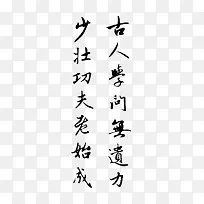 古人學問無遺力
少壯功夫老始成